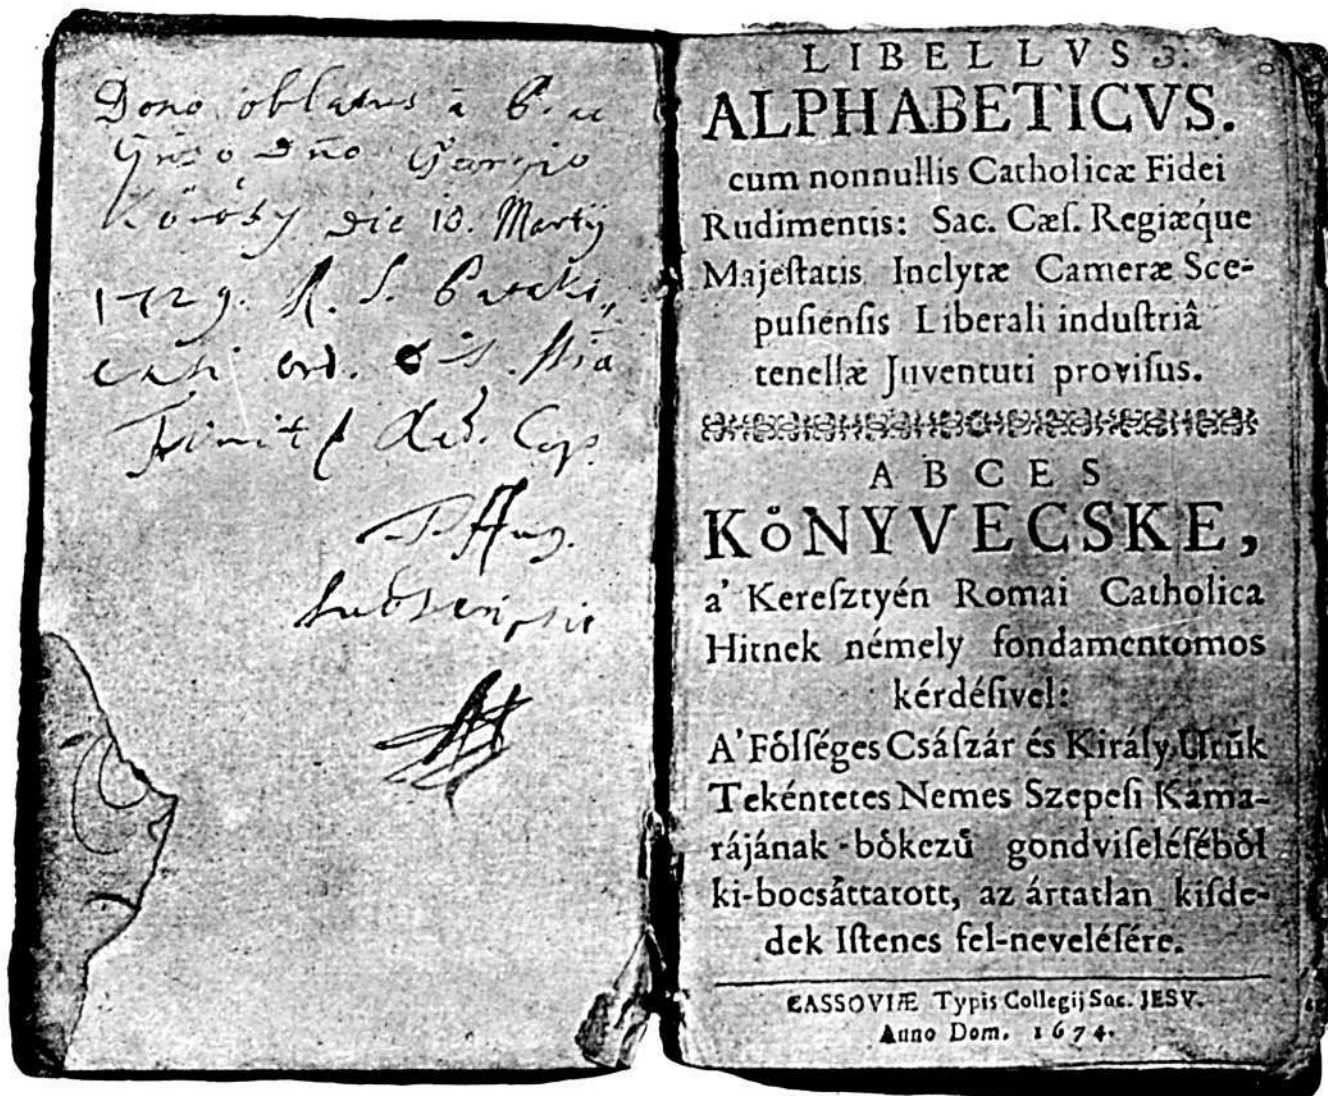 Dono oblatus a
Dno Georgio
die 10. Martij
1729. R. S.
ord. SS.
Cap.
P. Aug.
subscripsit
LIBELLVS 3.
ALPHABETICVS.
cum nonnullis Catholicæ Fidei
Rudimentis: Sac. Cæſ. Regiæque
Majeſtatis Inclytæ Cameræ Sce-
puſienſis Liberali induſtriâ
tenellæ Juventuti proviſus.
ABCES
KoͤNYVECSKE,
a' Kereſztyén Romai Catholica
Hitnek némely fondamentomos
kérdéſivel:
A' Foͤlſéges Cſáſzár és Király Uruͤk
Tekéntetes Nemes Szepeſi Kama-
rájának boͤkezuͤ gondviſeléſéboͤl
ki-bocsáttatott, az ártatlan kiſde-
dek Iſtenes fel-neveléſére.
CASSOVIÆ Typis Collegij Soc. JESV.
Anno Dom. 1674.